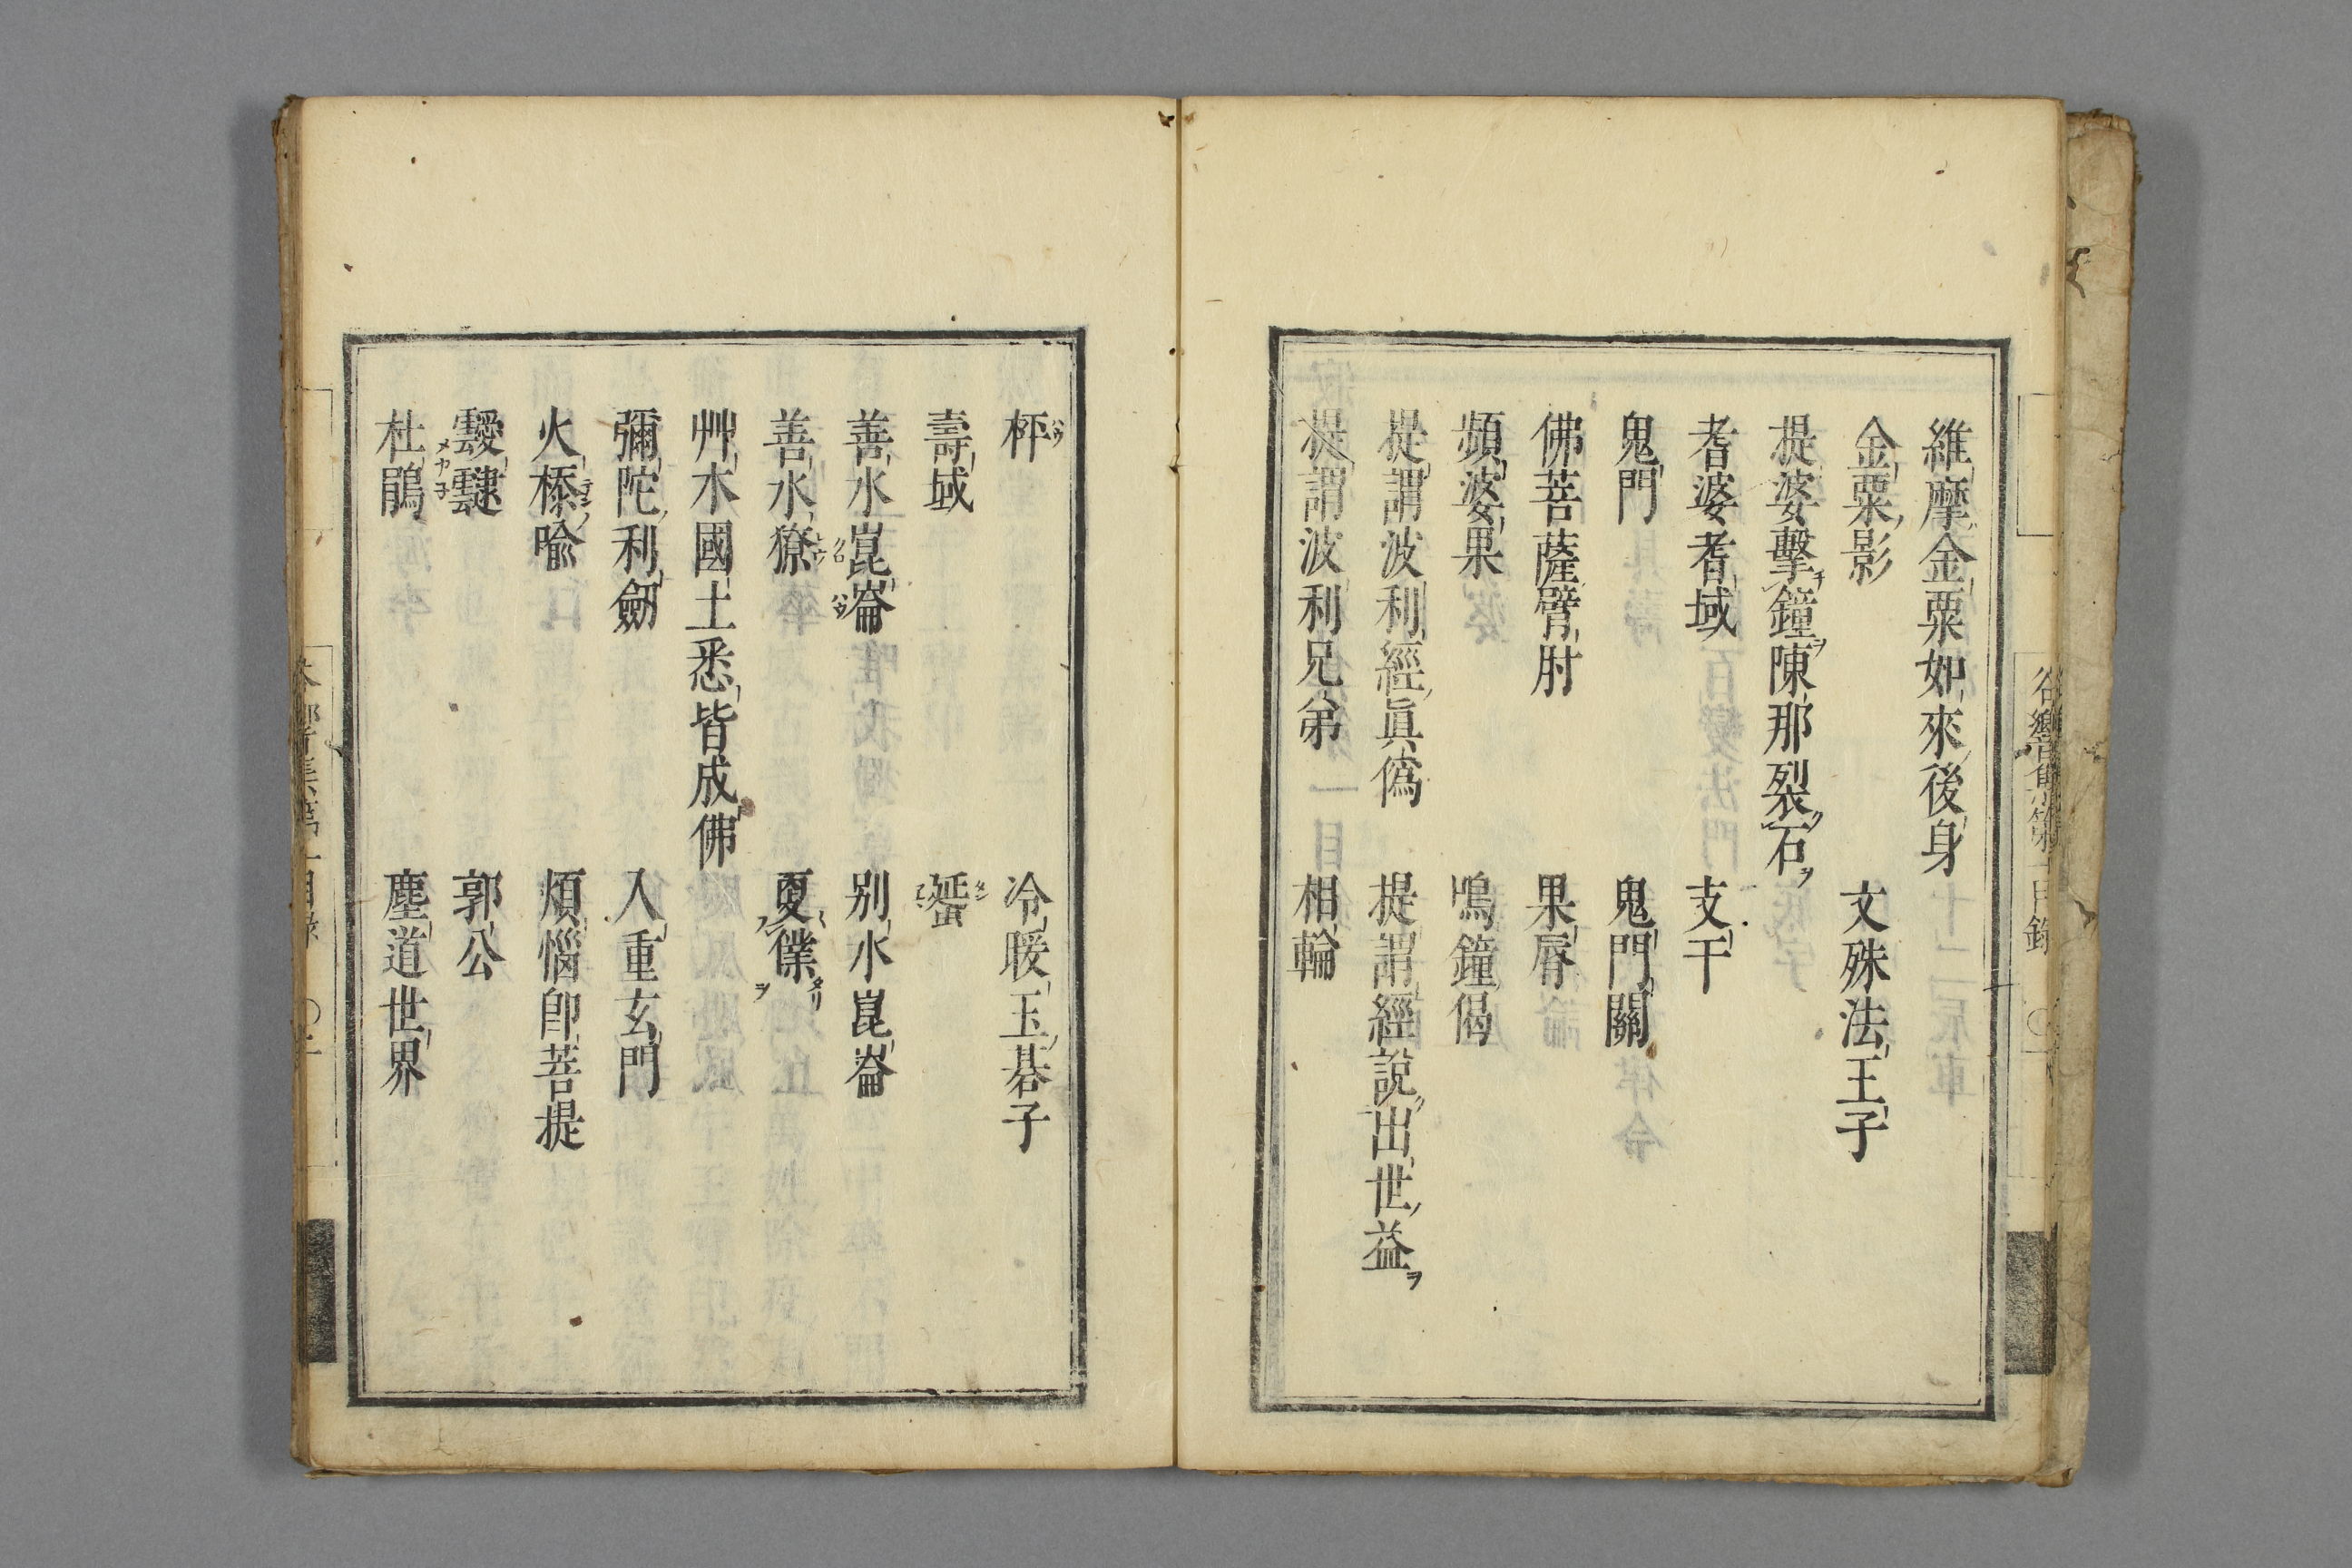 維摩金粟如來後身
金粟影　文殊法王子
提婆擊鐘陳那裂石
耆婆耆域　支干
鬼門　鬼門關
佛菩薩臂肘　果脣
頻婆果　鳴鐘偈
提謂波利經眞僞　提謂經說出世益
提謂波利兄弟　相輪
枰　冷暖玉碁子
壽域　蜑
善水崑崙　別水崑崙
善水獠　夏僕
艸木國土悉皆成佛
彌陀利劒　入重玄門
火㮇喩　煩惱卽菩提
靉靆　郭公
杜鵑　塵道世界
谷響集第一目錄